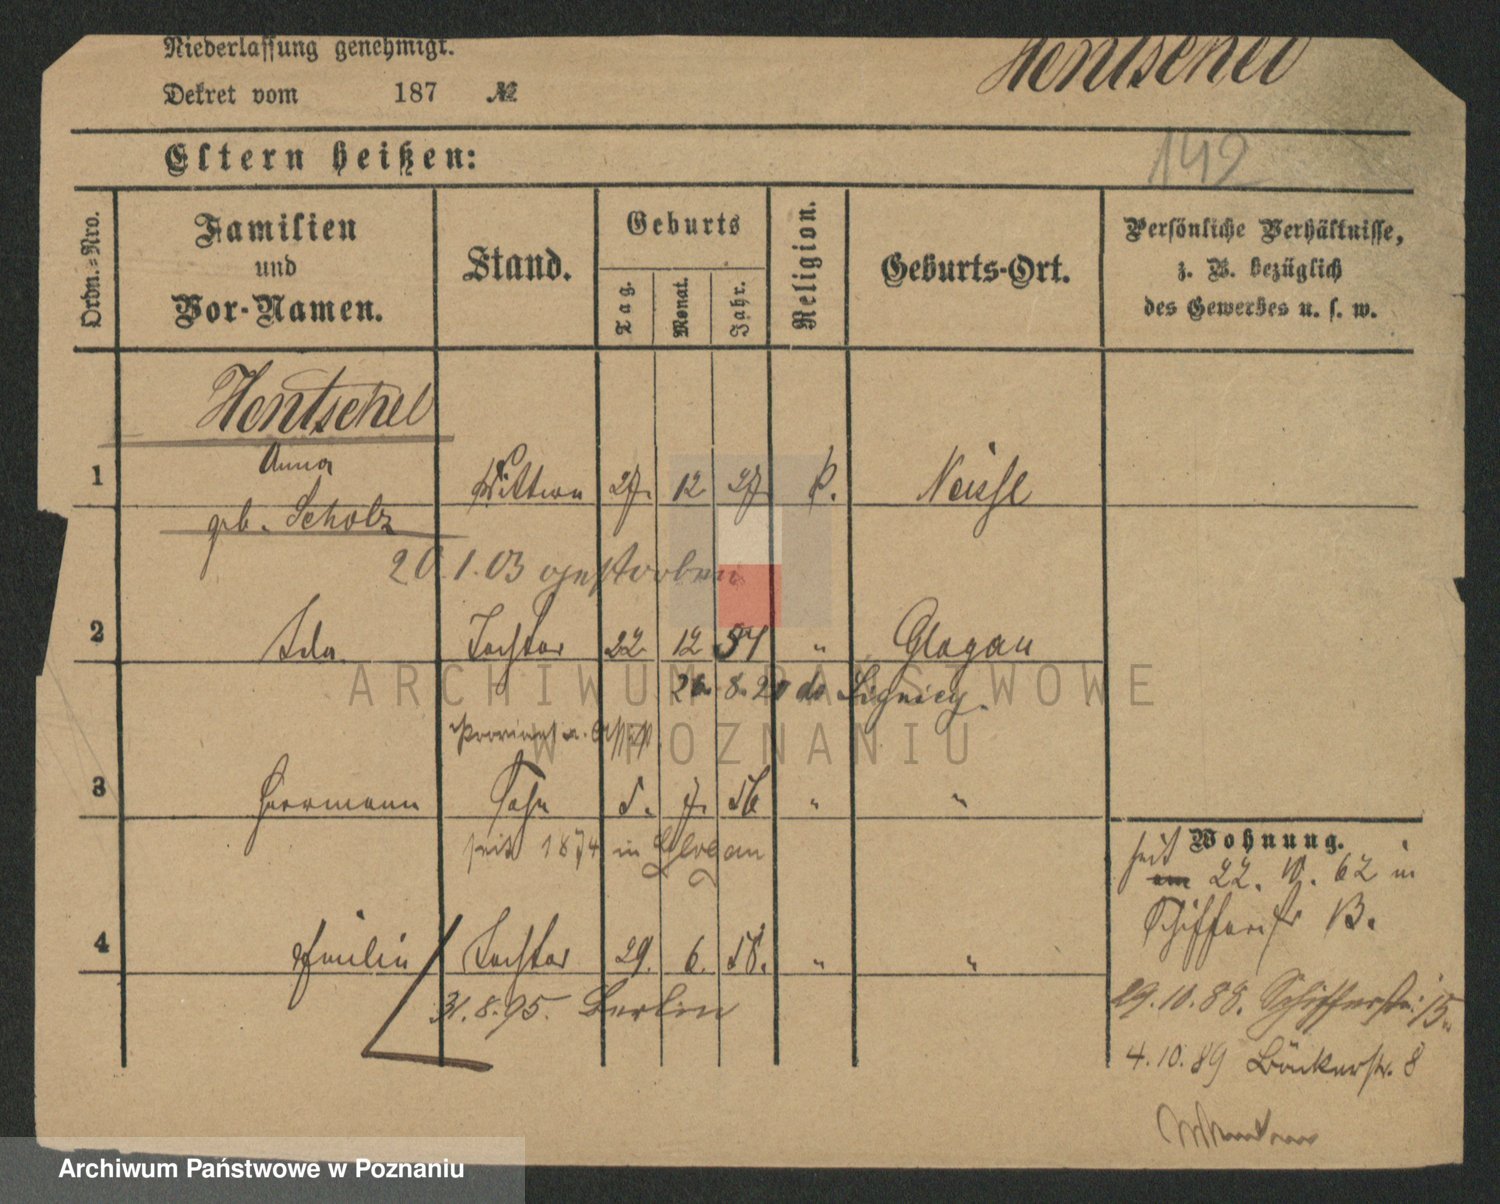 Niederlassung genehmigt.
Dekret vom 187 №
Hentschel
142
Eltern heißen:
Ordn.-Nro.
Familien
und
Vor-Namen.
Stand.
Geburts
Tag.
Monat.
Jahr.
Religion.
Geburts-Ort.
Persönliche Verhältnisse,
z. B. bezüglich
des Gewerbes u. s. w.
Hentschel
1 Anna Wittwe 27. 12 27. Neisse
geb. Scholz
20.1.03 gestorben
2 Ida Tochter 22. 12 54 " Glogau
26. 8. 20 Liegnitz.
3 Herrmann Sohn 5. 7. 56 " "
seit 1874 in Glogau
4 Tochter 29. 6. 58. " "
31.8.95. Berlin
Wohnung.
seit 22. 62 in
29.10.88. Schifferstr. 15.
4.10.89 Bäckerstr. 8
ARCHIWUM PAŃSTWOWE
W POZNANIU
Archiwum Państwowe w Poznaniu